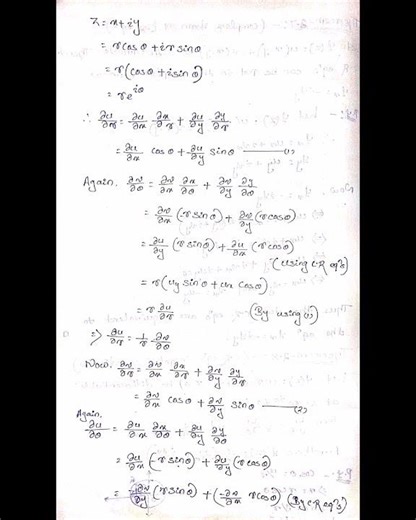 Z = x + iy
= r cosθ + i r sinθ
= r (cosθ + i sinθ)
= r e^{iθ}
∴ ∂u/∂r = ∂u/∂x ∂x/∂r + ∂u/∂y ∂y/∂r
= ∂u/∂x cosθ + ∂u/∂y sinθ ——— (1)
Again. ∂v/∂θ = ∂v/∂x ∂x/∂θ + ∂v/∂y ∂y/∂θ
= ∂v/∂x (-r sinθ) + ∂v/∂y (r cosθ)
= ∂u/∂y (r sinθ) + ∂u/∂x (r cosθ)
(Using C-R eqⁿs)
= r (uy sinθ + ux cosθ)
= r ∂u/∂r (By using (1))
=> ∂u/∂r = 1/r ∂v/∂θ
Now. ∂v/∂r = ∂v/∂x ∂x/∂r + ∂v/∂y ∂y/∂r
= ∂v/∂x cosθ + ∂v/∂y sinθ ——— (2)
Again.
∂u/∂θ = ∂u/∂x ∂x/∂θ + ∂u/∂y ∂y/∂θ
= ∂u/∂x (-r sinθ) + ∂u/∂y (r cosθ)
= -∂v/∂y (r sinθ) + (-∂v/∂x r cosθ) (By C-R eqⁿs)